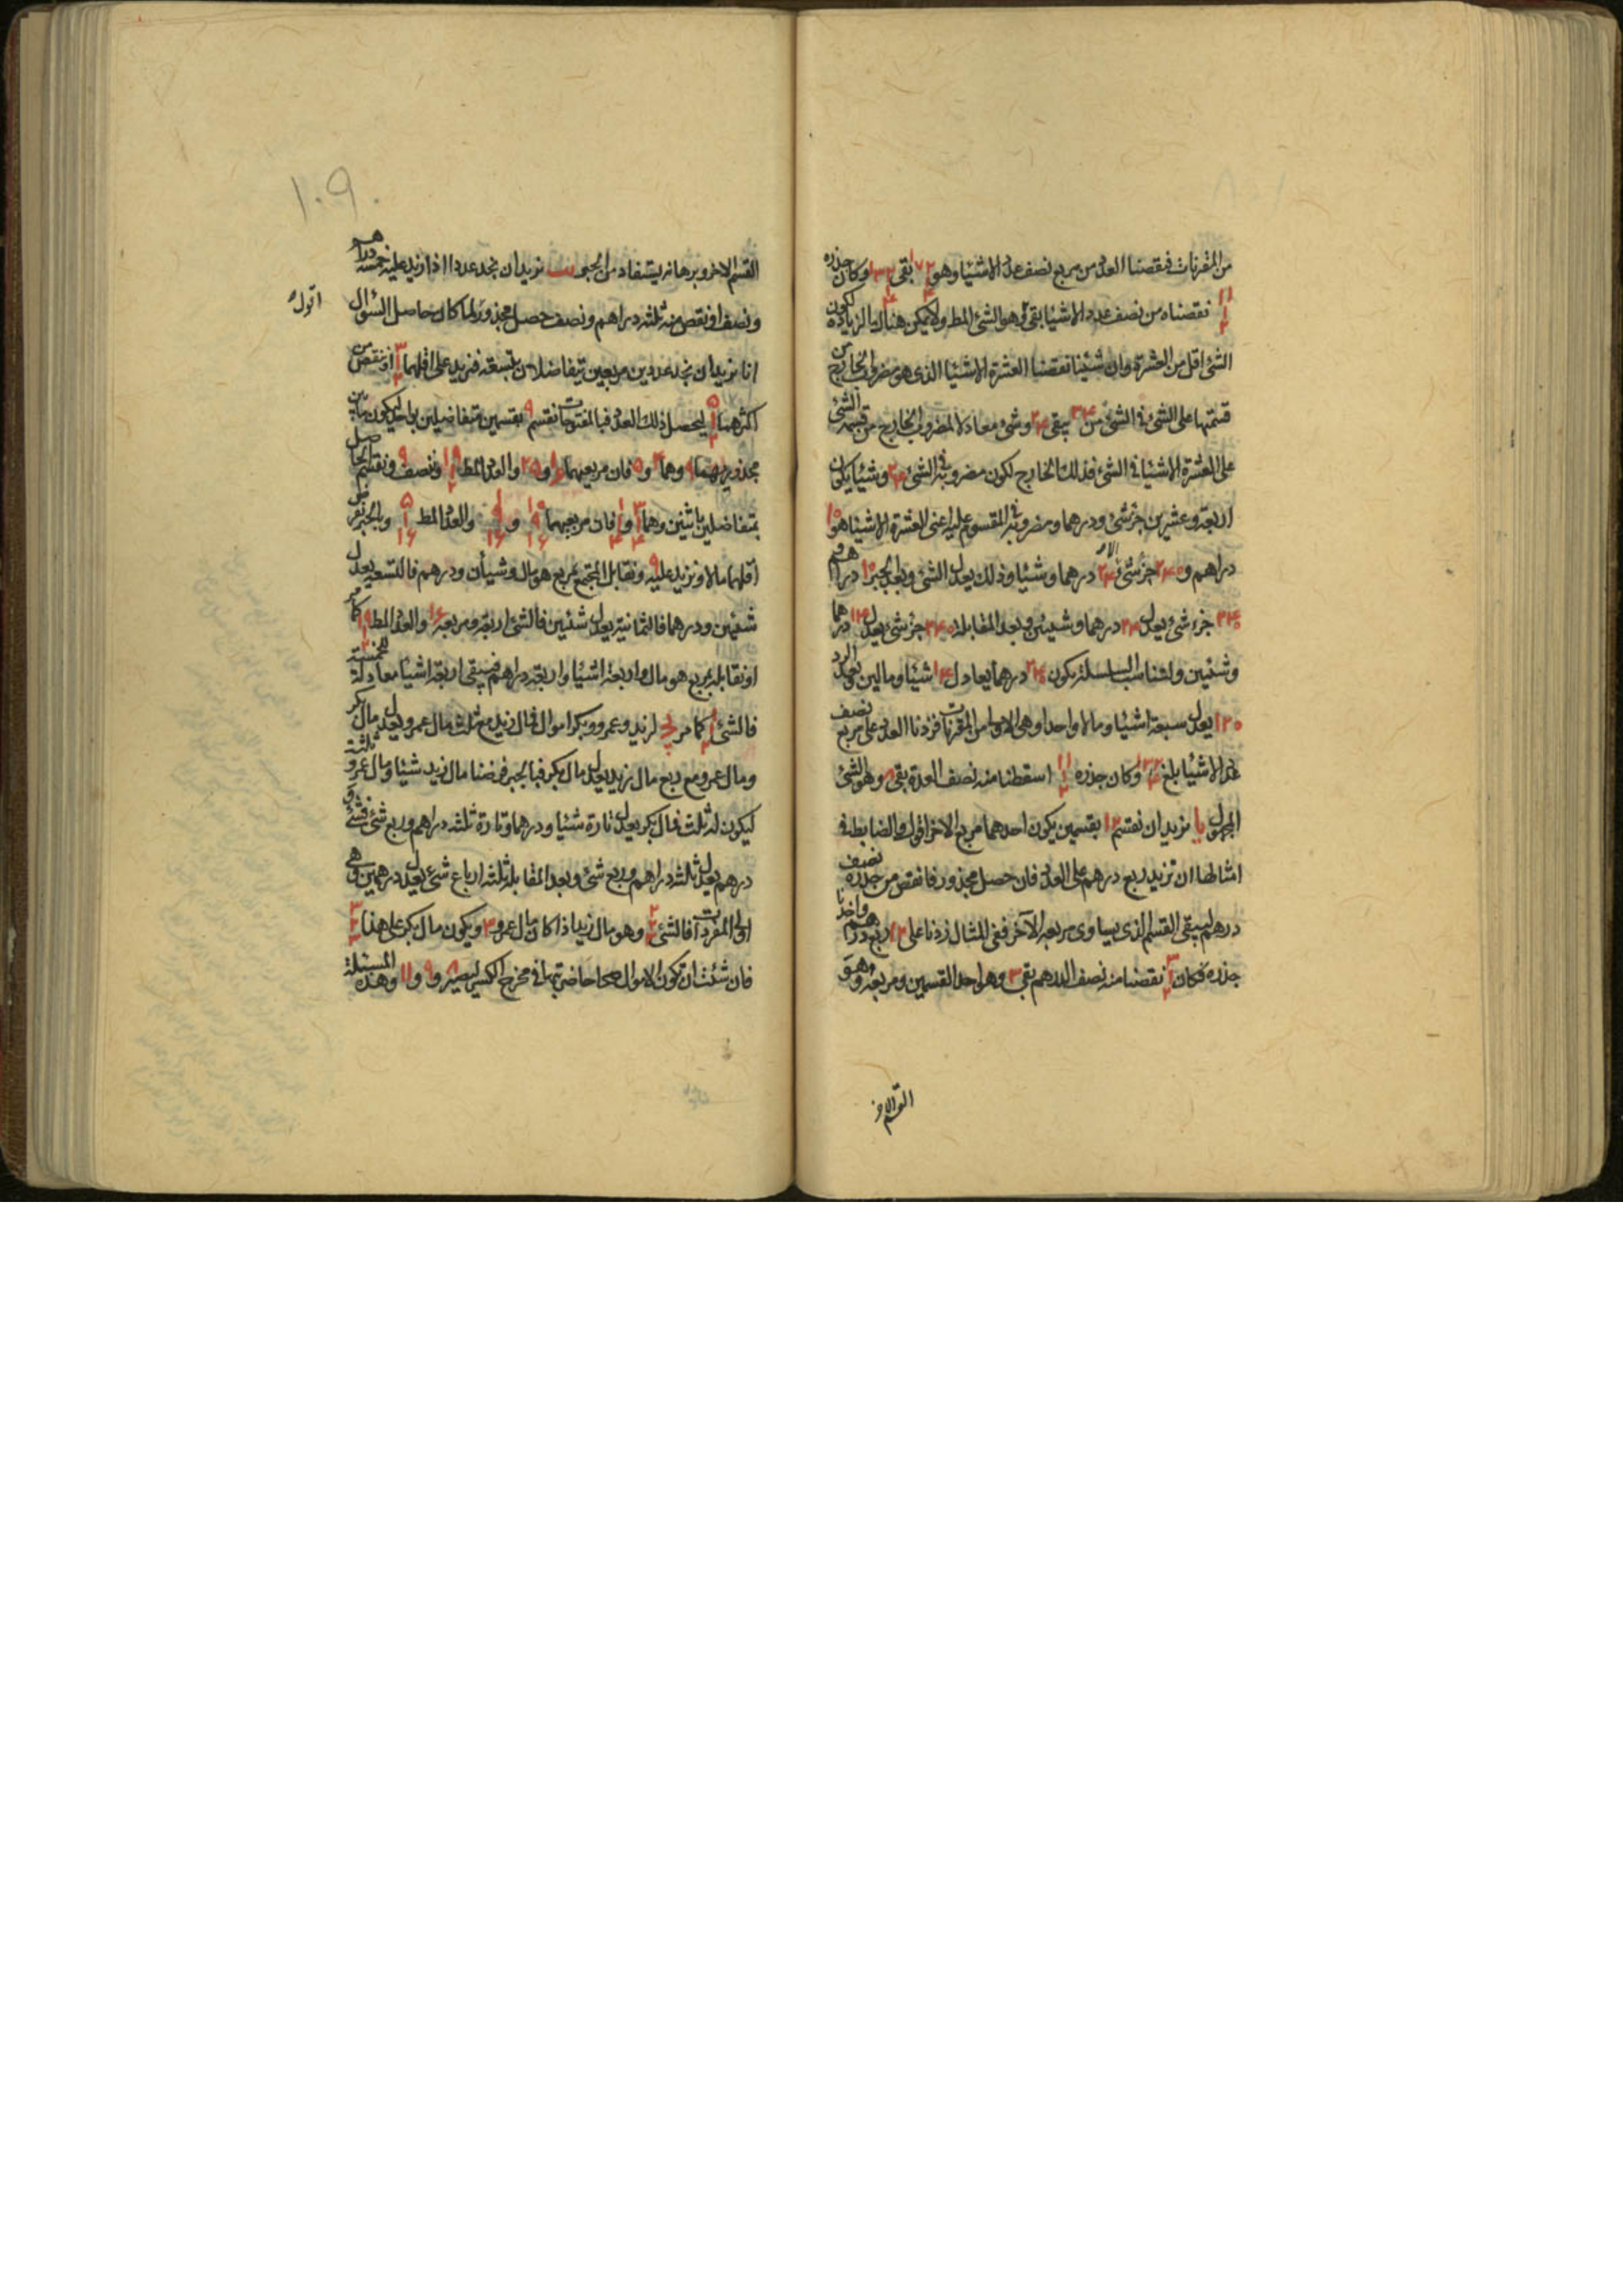 من المقترنات فنقصنا العدد من مربع نصف عدد الاشيا وهو بقى وكان جذره
نقصناه من نصف عدد الاشيا بقى وهو الشئ المط ولا يمكن هنا الزيادة لكون
الشئ اقل من العشرة وان شئنا نقصنا العشرة الا شيئا الذى هو مضروب الخارج من
قسمتها على الشئ فى الشئ من ٣۴ يبقى ٢۴ وشئ معادلا لمضروب الخارج من قسمة الشئ
على العشرة الا شيئا فى الشئ فذلك الخارج لكون مضروبه فى الشئ ٢۴ وشيئا يكون
اربعة وعشرين جزء شئ ودرهما ومضروبه فى المقسوم عليه اعنى العشرة الا شيئا هو ١٠
دراهم و ٢۴٠ جزء شئ الا ٢۴ درهما وشيئا وذلك يعدل الشئ وبعد الجبر ١٠ دراهم و
٢۴٠ جزء شئ يعدل ٢۴ درهما وشيئين وبعد المقابلة ٢۴٠ جزء شئ يعدل ١۴ درهما
وشيئين ولتناسب السلسلة يكون ٢۴٠ درهما يعادل ١۴ شيئا ومالين بعد الرد
١٢٠ يعدل سبعة اشيا ومالا واحدا وهى الاولى من المقترنات فزدنا العدد على مربع نصف
عدد الاشيا بلغ وكان جذره اسقطنا منه نصف العدة بقى ٨ وهو الشئ
المجهول يا نريد ان نقسم ١٢ بقسمين يكون احدهما مربع الاخر اقول والضابط فى
امثالها ان تزيد ربع درهم على العدد فان حصل مجذور فانقص من جذره نصف
درهم ليبقى القسم الذى يساوى مربعه الآخر ففى المثال زدنا على ١٢ ربع درهم واخذنا
جذره فكان نقصنا منه نصف الدرهم بقى ٣ وهو احد القسمين ومربعه ٩ وهو
القسم الاخر
١٠٩
القسم الاخر وبرهانه يستفاد من الجبر يب نريد ان نجد عددا اذا زيد عليه خمسة دراهم
ونصف او نقص منه ثلثة دراهم ونصف حصل مجذور ولما كان حاصل السؤال
اقول
انا نريد ان نجد عددين مربعين يتفاضلان بتسعة فنزيد على اقلهما او ننقص من
اكثرهما ليحصل ذلك العدد فبالمفتوحات نقسم ٩ بقسمين متفاضلين بواحد ليكون ما بين
مجذوريهما ٩ وهما ۴ و ٥ فان مربعيهما ١۶ و ٢٥ والعدد المط وننصف ٩ ونقسم الحاصل
بمتفاضلين باثنين وهما و فان مربعيهما و والعدد المط وبالجبر نفرض
اقلهما مالا ونزيد عليه ٩ ونقابل المجتمع بمربع هو مال وشيئان ودرهم فالتسعة يعدل
شيئين ودرهما فالثمانية يعدل شيئين فالشئ اربعة ومربعه ١۶ والعدد المط كما مر
او نقابله بمربع هو مال واربعة اشيا واربعة دراهم فيبقى اربعة اشيا معادلة لخمسة
فالشئ كما مر يج لزيد وعمرو وبكر اموال فمال زيد مع ثلث مال عمرو يعدل مال بكر
ومال عمرو مع ربع مال زيد يعدل مال بكر فبالجبر فرضنا مال زيد شيئا ومال عمرو ثلثة
ليكون له ثلث فمال بكر يعدل تارة شيئا ودرهما وتارة ثلثة دراهم وربع شئ فشئ و
درهم يعدل ثلثة دراهم وربع شئ وبعد المقابلة ثلثة ارباع شئ يعدل درهمين وهى
اولى المفردات فالشئ وهو مال زيد اذا كان مال عمرو ٣ ويكون مال بكر على هذا
فان شئت ان تكون الاموال صحاحا ضربتها فى مخرج الكسر ليصير ٨ و ٩ و ١١ وهذه المسئلة